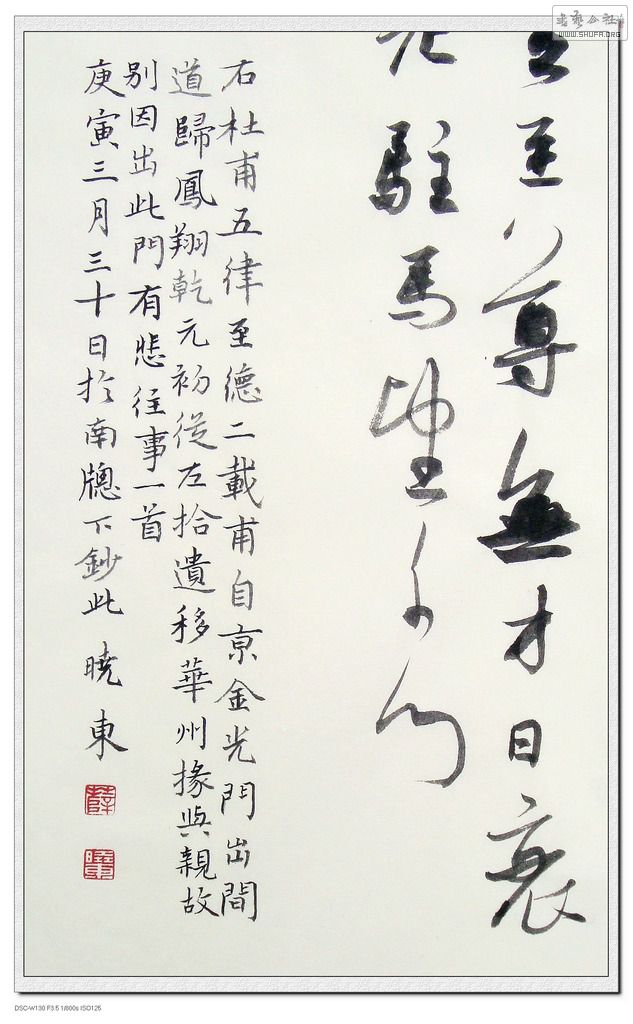 书艺公社
WWW.SHUFA.ORG
豈至尊無才日衰
老駐馬望千門
右杜甫五律至德二載甫自亰金光門出間
道歸鳳翔乾元初從左拾遺移華州掾與親故
別因出此門有悲往事一首
庚寅三月三十日於南牕下鈔此 曉東
DSC-W130 F3.5 1/800s ISO125